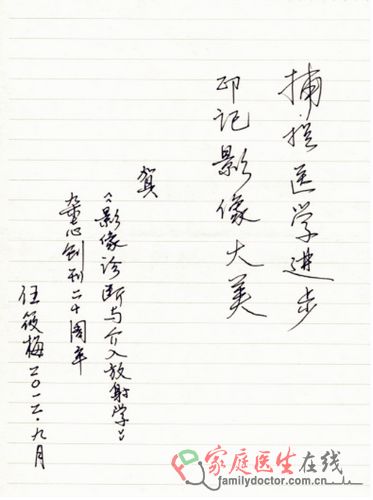 捕捉医学进步
印记影像大美
贺
《影像诊断与介入放射学》
杂志创刊二十周年
任筱梅二〇一二.九月
家庭医生在线
familydoctor.com.cn